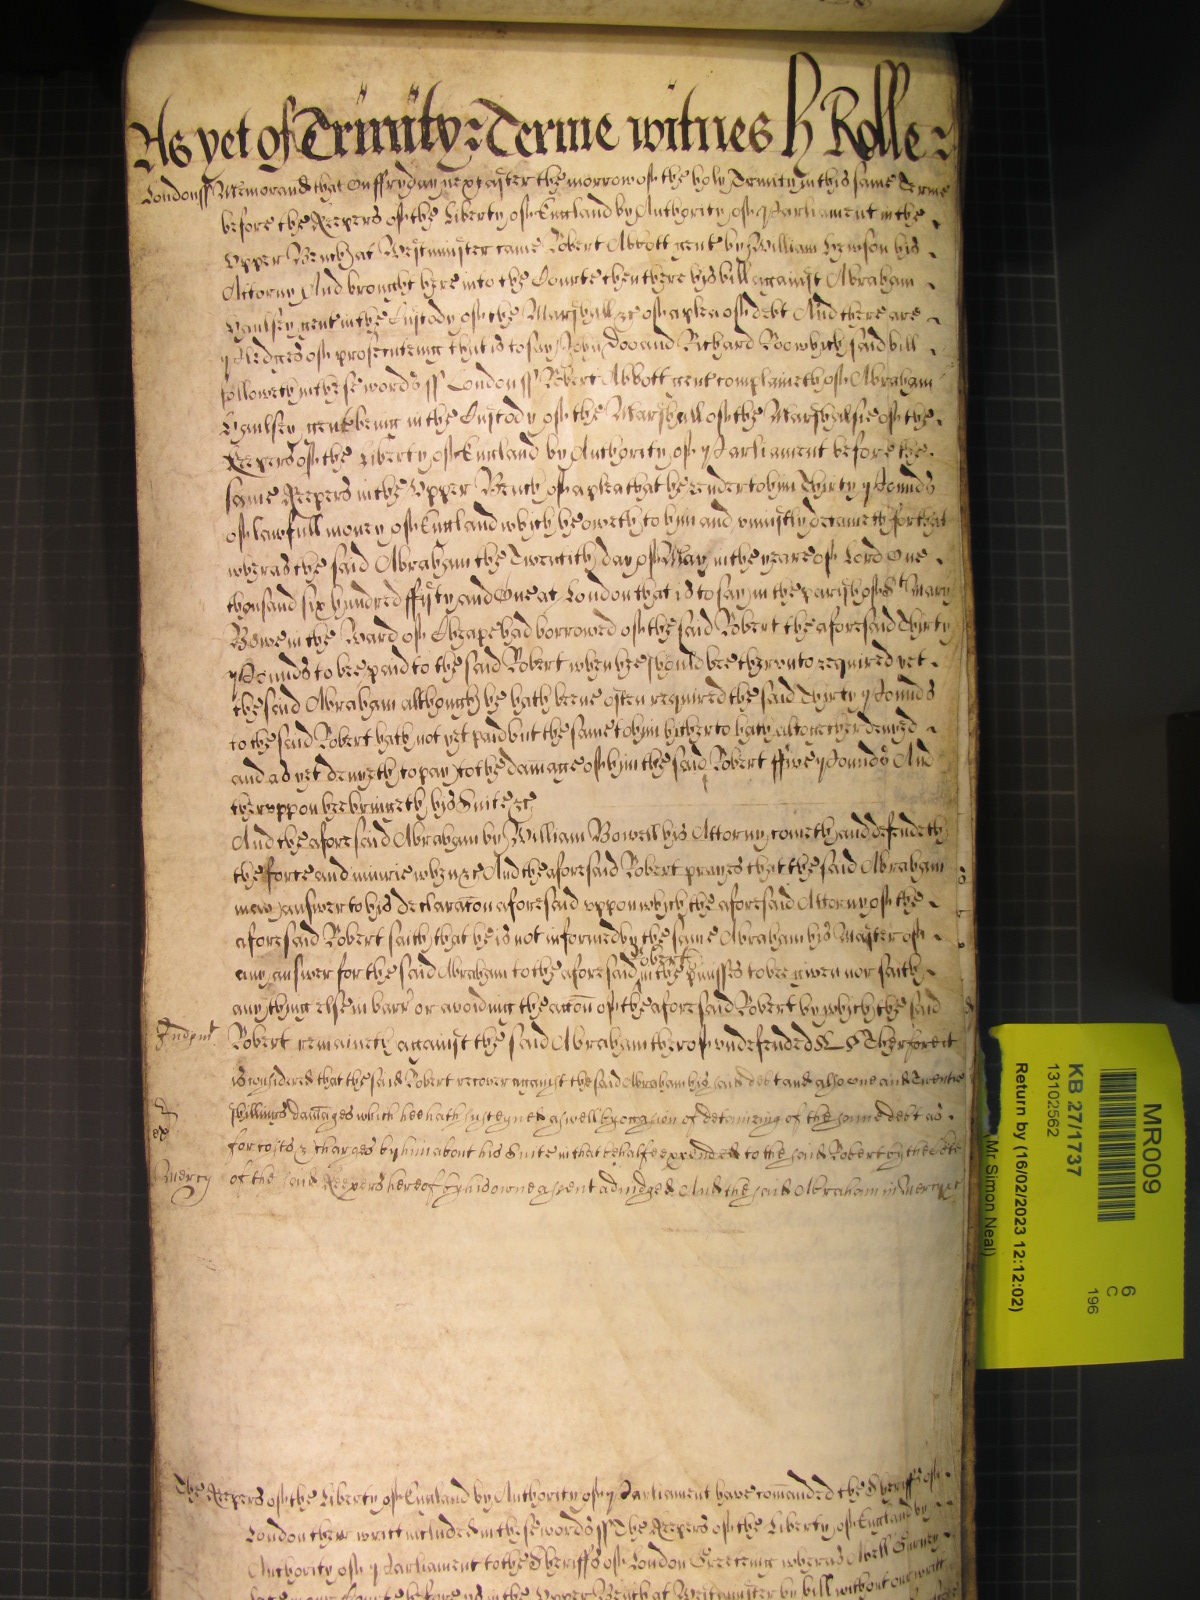 As yet of Trinity Terme witnes H Rolle
London ss Memorand that on ffryday next after the morrow of the holy Trinity in this same Terme
before the Keepers of the Liberty of England by Authority of Parliament in the
Upper Bench at Westminster came Robert Abbott gent by William Hewson his
Attorny And brought here into the Courte then there his bill against Abraham
gent in the Custody of the Marshall &c of a plea of debt And there are
Pledges of prosecuteing that is to say John Doo and Richard Roo which said bill
followeth in these words ss London ss Robert Abbott gent complaineth of Abraham
gent being in the Custody of the Marshall of the Marshalsie of the
Keepers of the Liberty of England by Authority of Parliament before the
same Keepers in the Upper Bench of a plea that he render to him Thirty Pounds
of lawfull money of England which he oweth to him and uniustly detaineth for that
wheras the said Abraham the Twentith day of May in the yeare of Lord One
thousand six hundred ffifty and One at London that is to say in the parish of St Mary
Bowe in the Ward of Cheape had borrowed of the said Robert the aforesaid Thirty
Pounds to bee paid to the said Robert when hee should bee therunto required yet
the said Abraham although he hath beene often required the said Thirty Pounds
to the said Robert hath not yet paid but the same to him hitherto hath altogether denyed
and as yet denyeth to pay to the damage of him the said Robert ffive Pounds And
theruppon hee bringeth his Suite &c
And the aforesaid Abraham by William Bowell his Attorny cometh and defendeth
the force and iniurie when &c And the aforesaid Robert prayes that the said Abraham
may answer to his declaracon aforesaid uppon which the aforesaid Attorny of the
aforesaid Robert saith that he is not informed by the same Abraham his Master of
any answer for the said Abraham to the aforesaid Robert in the premisses to bee given nor saith
any thing else in barr or avoiding the accon of the aforesaid Robert by which the said
Judgmt Robert remaineth against the said Abraham therof undefended &c Therfore it
is considered that the said Robert recover against the said Abraham his said debt and also one and twentie
shillings damages which hee hath susteyned aswell by occasion of detaineing of the same debt as
for costs & charges by him about his Suite in that behalfe expended to the said Robert by the
Mercy of the said Keepers hereof by his owne assent adiudged And the said Abraham in Mercy &c
The Keepers of the Liberty of England by Authority of Parliament have comanded the Sheriffs of
London their writt included in these words ss The Keepers of the Liberty of England by
Authority of Parliament to the Sheriffs of London Greeteing wheras Abell Gurney
before us in the Upper Bench at Westminster by bill without our writt
MR009
6
C
196
KB 27/1737
13102562
Return by (16/02/2023 12:12:02)
Mr Simon Neal)